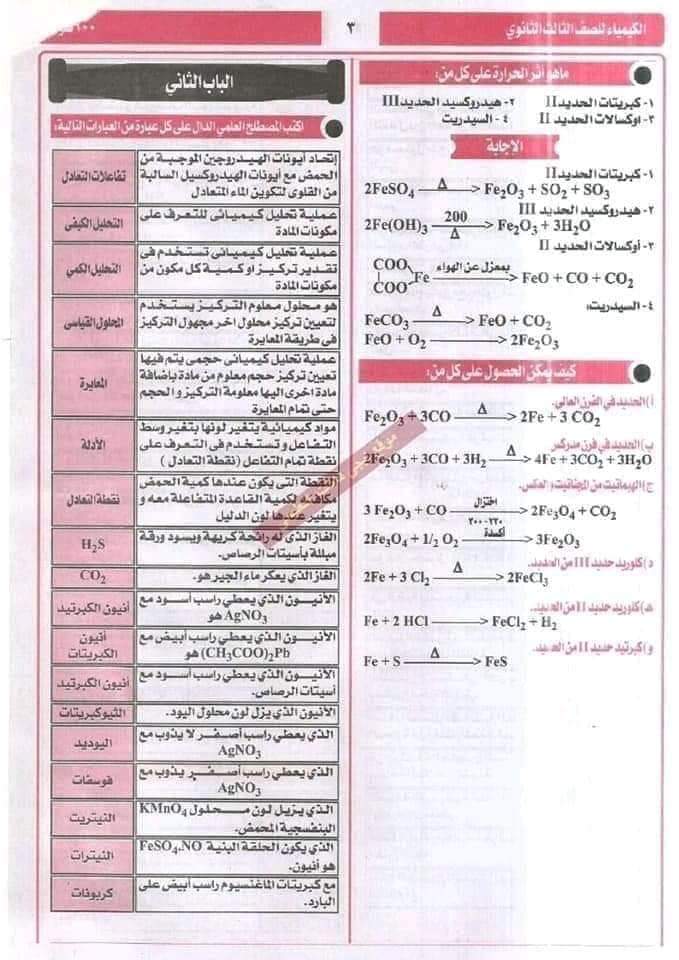 الكيمياء للصف الثالث الثانوي
٣
ما هو أثر الحرارة على كل من:
١- كبريتات الحديد II ٢- هيدروكسيد الحديد III
٣- أوكسالات الحديد II ٤- السيدريت
الإجابة
١- كبريتات الحديد II
2FeSO4 Δ > Fe2O3 + SO2 + SO3
٢- هيدروكسيد الحديد III
2Fe(OH)3 200 Δ > Fe2O3 + 3H2O
٣- أوكسالات الحديد II
COO
COO Fe بمعزل عن الهواء > FeO + CO + CO2
٤- السيدريت:
FeCO3 Δ > FeO + CO2
FeO + O2 > 2Fe2O3
كيف يمكن الحصول على كل من:
أ) الحديد في الفرن العالي.
Fe2O3 + 3CO Δ > 2Fe + 3 CO2
ب) الحديد في فرن مدركس.
2Fe2O3 + 3CO + 3H2 Δ > 4Fe + 3CO2 + 3H2O
ج) الهيماتيت من المجناتيت والعكس.
3 Fe2O3 + CO اختزال ٢٣٠-٢٠٠ > 2Fe3O4 + CO2
2Fe3O4 + 1/2 O2 أكسدة > 3Fe2O3
د) كلوريد حديد III من الحديد.
2Fe + 3 Cl2 Δ > 2FeCl3
هـ) كلوريد حديد II من الحديد..
Fe + 2 HCl > FeCl2 + H2
و) كبرتيد حديد II من الحديد.
Fe + S Δ > FeS
الباب الثاني
اكتب المصطلح العلمي الدال على كل عبارة من العبارات التالية:
إتحاد أيونات الهيدروجين الموجبة من
الحمض مع أيونات الهيدروكسيل السالبة
من القلوى لتكوين الماء المتعادل
تفاعلات التعادل
عملية تحليل كيميائى للتعرف على
مكونات المادة
التحليل الكيفى
عملية تحليل كيميائى تستخدم فى
تقدير تركيز او كمية كل مكون من
مكونات المادة
التحليل الكمي
هو محلول معلوم التركيز يستخدم
لتعيين تركيز محلول اخر مجهول التركيز
فى طريقة المعايرة
المحلول القياسى
عملية تحليل كيميائى حجمى يتم فيها
تعيين تركيز حجم معلوم من مادة باضافة
مادة اخرى اليها معلومة التركيز و الحجم
حتى تمام المعايرة
المعايرة
مواد كيميائية يتغير لونها بتغير وسط
التفاعل و تستخدم فى التعرف على
نقطة تمام التفاعل ( نقطة التعادل )
الأدلة
النقطة التى يكون عندها كمية الحمض
مكافئه لكمية القاعدة المتفاعلة معه و
يتغير عندها لون الدليل
نقطة التعادل
الغاز الذى له رائحة كريهة ويسود ورقة
مبللة بأسيتات الرصاص.
H2S
الغاز الذي يعكر ماء الجير هو.
CO2
الأنيون الذي يعطي راسب أسود مع
AgNO3 هو
أنيون الكبرتيد
الأنيون الذي يعطي راسب أبيض مع
(CH3COO)2Pb هو
أنيون
الكبريتات
الأنيون الذي يعطي راسب أسود مع
أسيتات الرصاص.
أنيون الكبرتيد
الأنيون الذي يزل لون محلول اليود.
الثيوكبريتات
الذي يعطي راسب أصفر لا يذوب مع
AgNO3
اليوديد
الذي يعطي راسب أصفر يذوب مع
AgNO3
فوسفات
الذي يزيل لون محلول KMnO4
البنفسجية المحمض.
النيتريت
الذي يكون الحلقة البنية FeSO4.NO
هو أنيون.
النيترات
مع كبريتات الماغنسيوم راسب أبيض على
البارد.
كربونات